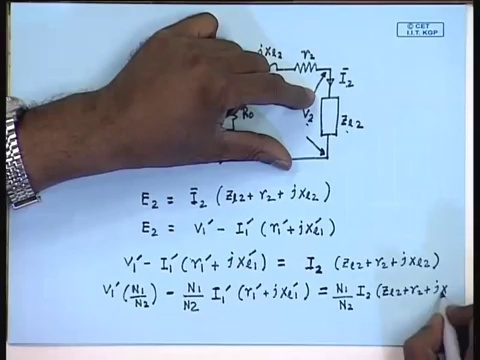 © CET
I.I.T. KGP
jxl2 r2
Ī2
R0
V2
Zl2
E2 = Ī2 (Zl2 + r2 + jxl2)
E2 = V1' - I1' (r1' + jxl1')
V1' - I1' (r1' + jxl1') = I2 (Zl2 + r2 + jxl2)
V1' (N1/N2) - N1/N2 I1' (r1' + jxl1') = N1/N2 I2 (Zl2 + r2 + jx